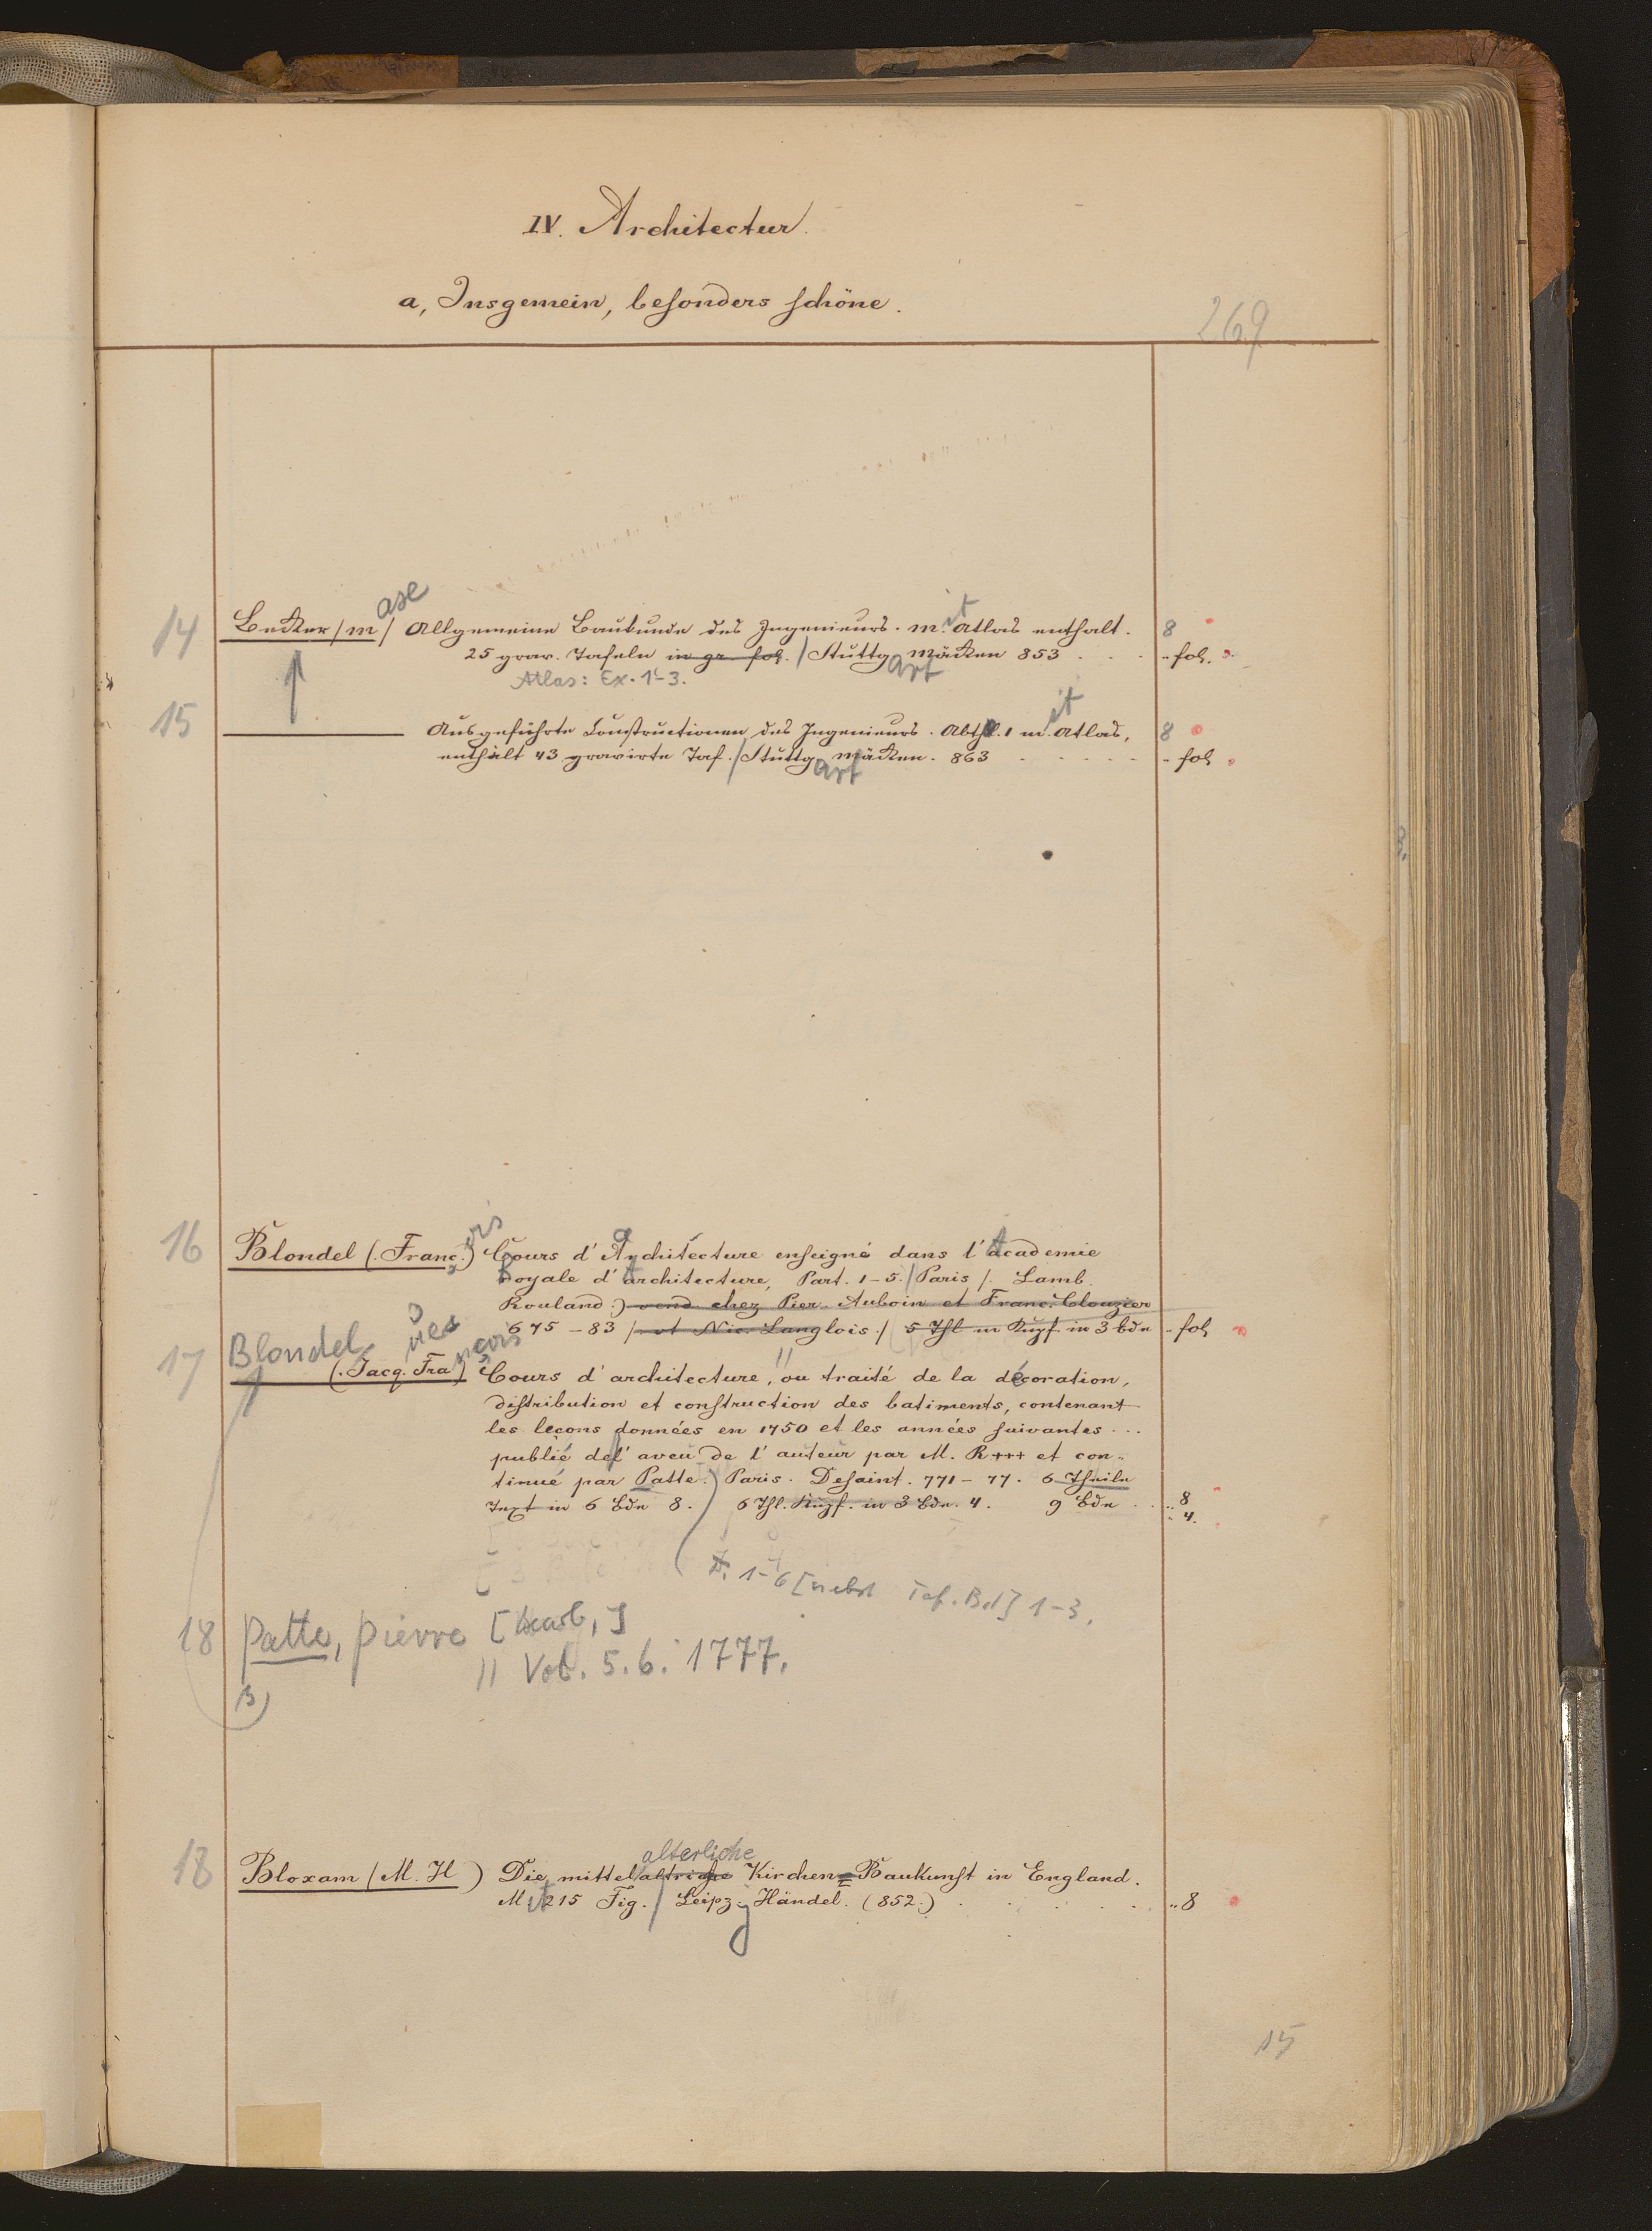 IV. Architectur.
a, Insgemein, besonders schöne.
269
14 Becker /M/ Allgemeine Baukunde des Ingenieurs. M. Atlas enthalt. 8
ase it
25 grav. Tafeln in gr. fol. / Stuttg Mäcken 853 . . . " fol.
art
Atlas: Ex. 1-3.
15 ——— Ausgeführte Constructionen des Ingenieurs. Abthl. 1 m. Atlas, 8
it
enthält 43 gravirte Taf. / Stuttg Mäcken. 863 . . . . . " fol
art
16 Blondel (. Franç.) Cours d'Architecture enseigné dans l'academie
ois
Royale d'architecture, Part. 1-5. / Paris /. Lamb.
Rouland.) vend chez Pier. Auboin et Franc. Clouzier
675-83 / et Nic. Langlois./ 5 Thl m Kupf. in 3 Bdn " fol
17 Blondel (. Jacq. Fra) Cours d'architecture, ou traité de la décoration,
ues nçois
distribution et construction des batiments, contenant
les leçons données en 1750 et les années suivantes ...
publié de l'aveu de l'auteur par M. R+++ et con-
tinué par Patte.) Paris. Desaint. 771-77. 6 Theile
Text in 6 Bdn 8. 6 Thl. Kupf. in 3 Bdn. 4. 9 Bde . . " 8
" 4.
1-6 [nebst Taf. Bd] 1-3.
18 Patte, Pierre [Bearb.]
11 Vol. 5.6. 1777.
18 Bloxam (M. H) Die mittelaltrige Kirchen=Baukunst in England.
alterliche
Mit 215 Fig. / Leipz. Händel. (852.) . . . . . " 8
g
15